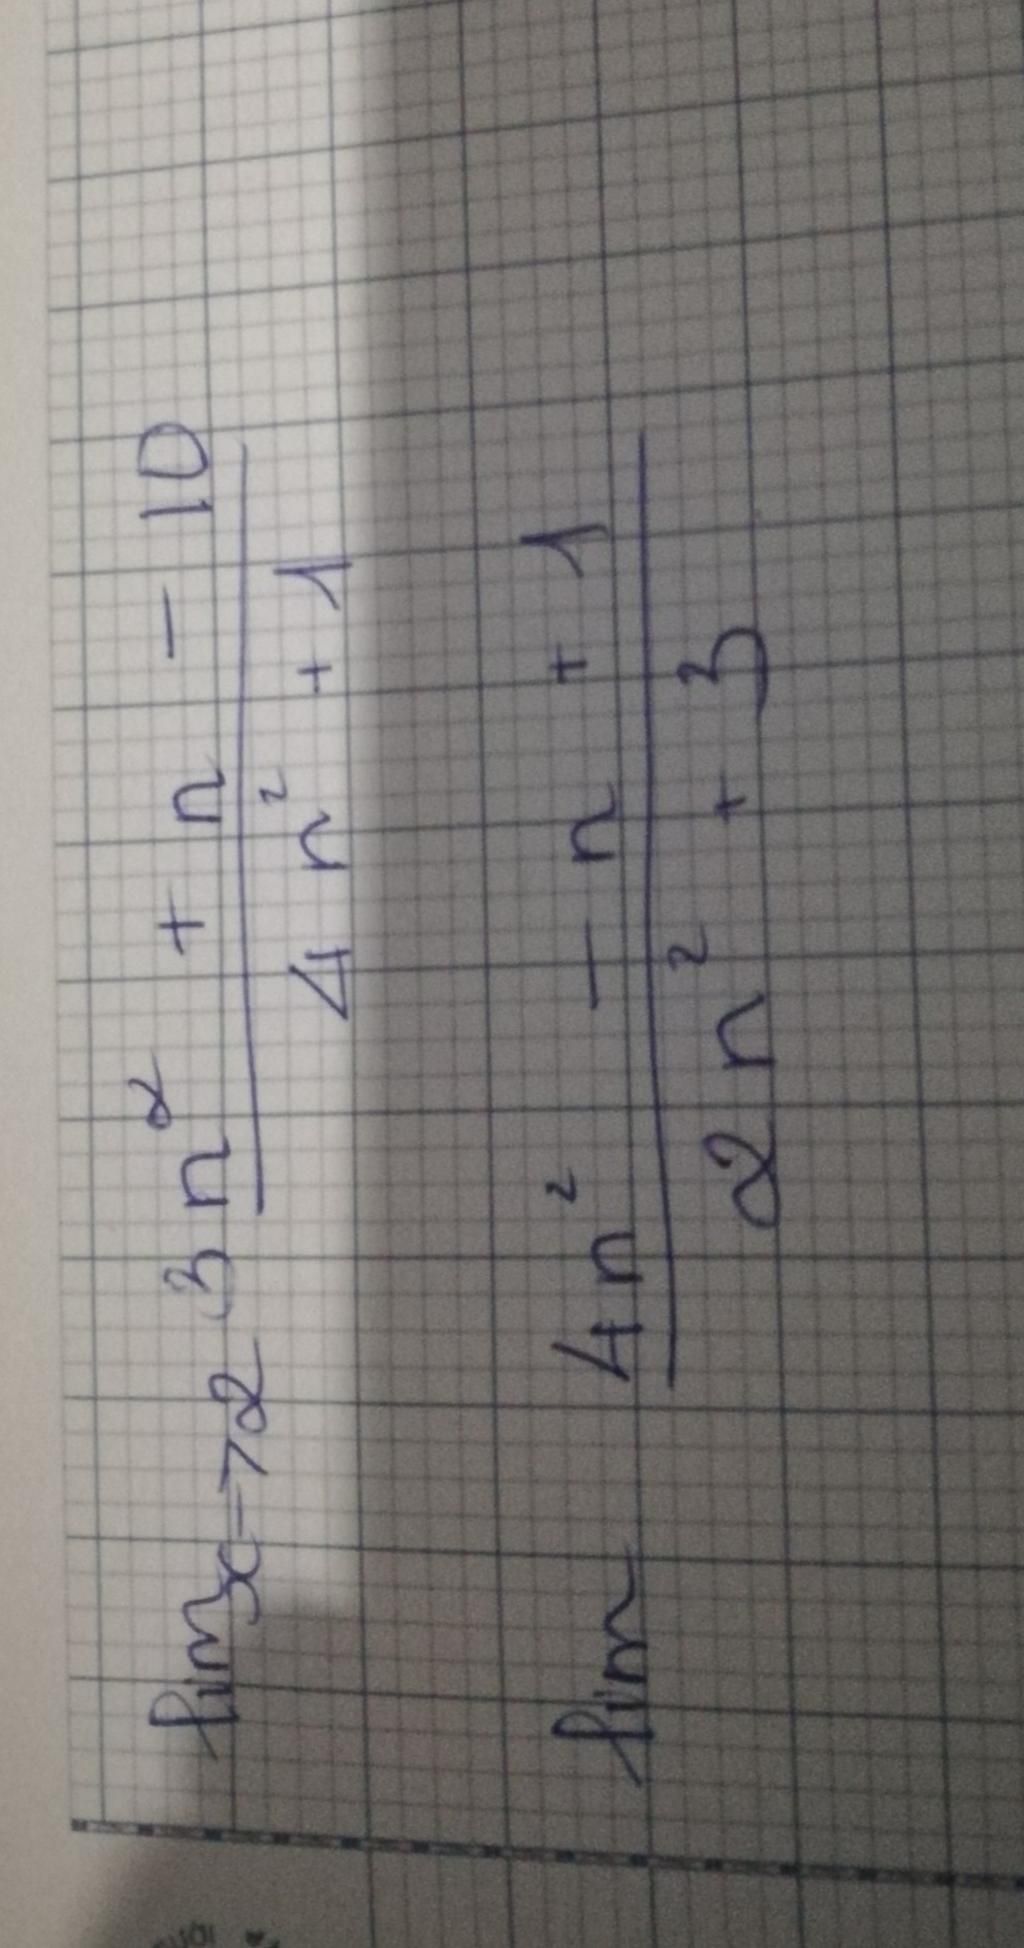 lim x→2 3n² + n - 10
4n² + 1
lim 4n² - n + 1
2n² + 3